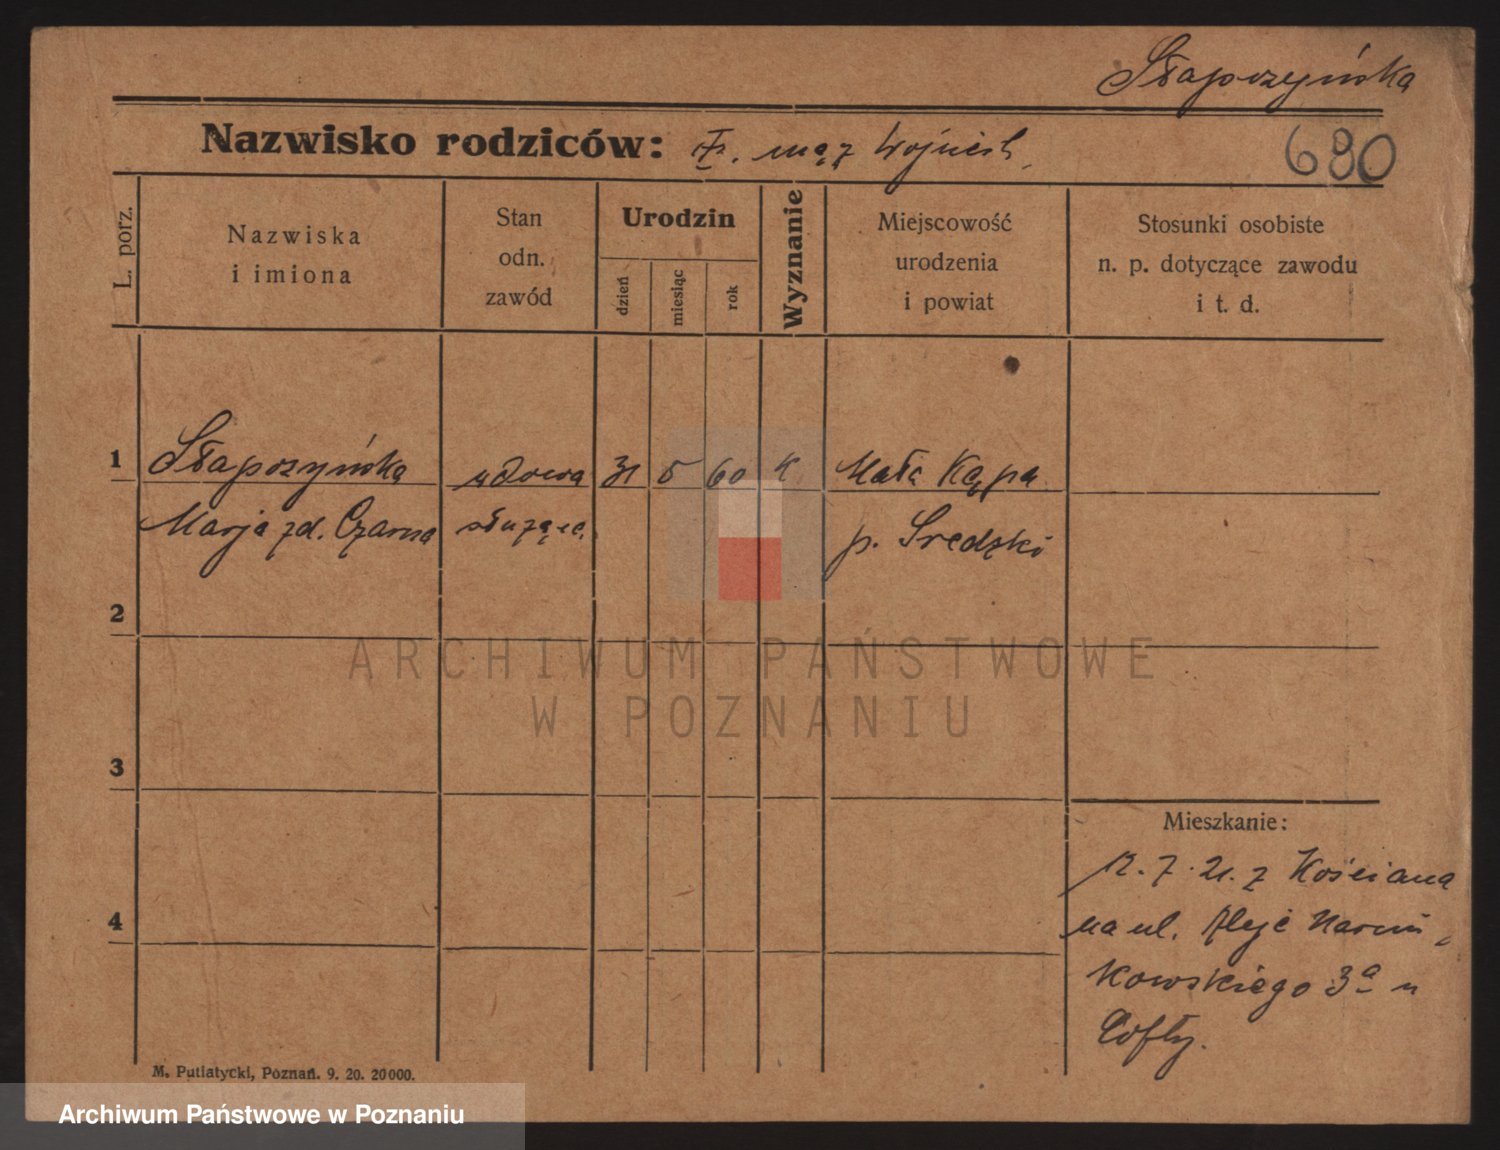 Słapczyńska
Nazwisko rodziców: mąż Wojciech
680
L. porz.
Nazwiska
i imiona
Stan
odn.
zawód
Urodzin
dzień
miesiąc
rok
Wyznanie
Miejscowość
urodzenia
i powiat
Stosunki osobiste
n. p. dotyczące zawodu
i t. d.
1
Słapczyńska wdowa 31 5 60 K Mała Kępa
Marja zd. Czarna służąca. p. Sredzki
2
3
4
Mieszkanie:
12.7.21. z Kościana
na ul. Aleje Marcin
kowskiego 3a u
M. Putiatycki, Poznań. 9. 20. 20000.
ARCHIWUM PAŃSTWOWE
W POZNANIU
Archiwum Państwowe w Poznaniu